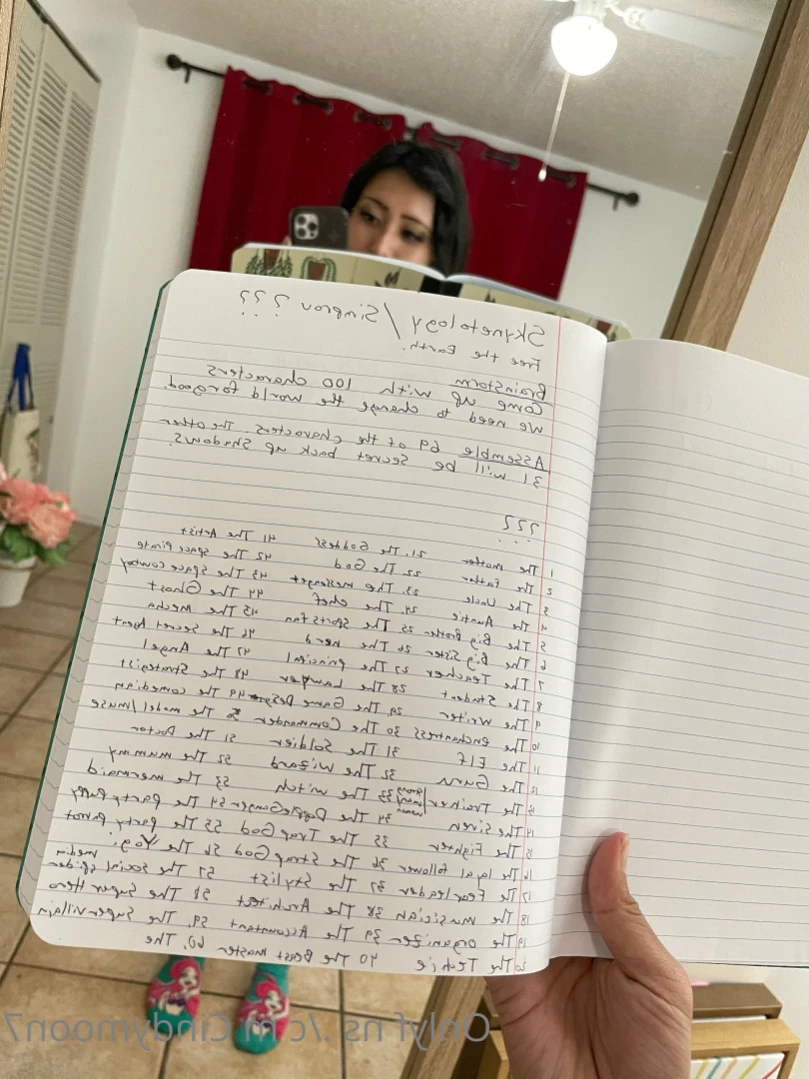 Skynetology / Simprov ???
Free the Earth.
Brainstorm
Come up with 100 characters
we need to change the world for good.
Assemble 69 of the characters. The other
31 will be secret back up shadows.
???
1 The mother 21. The Goddess 41 The Artist
2 The Father 22 The God 42 The space Pirate
3 The Uncle 23. The messenger 43 The Space cowboy
4 The Auntie 24. The chef 44 The Ghost
5 The Big Brother 25 The Sports fan 45 The Mecha
6 The Big Sister 26 The nerd 46 The Secret Agent
7 The Teacher 27 The principal 47 The Angel
8 The Student 28 The Lawyer 48 The Strategist
9 The Writer 29 The Game Designer 49 The comedian
10 The enchantress 30 The Commander 50 The model/muse
11 The Elf 31 The Soldier 51 The Doctor
12 The Guru 32 The Wizard 52 The mummy
13 The Trainer 33 The witch 53 The mermaid
14 The Siren 34 The Dopplegänger 54 The Party Puppy
15 The Fighter 35 The Trap God 55 The Party Parrot
16 The loyal follower 36 The Strap God 56 The Yogi
17 The Fearleader 37 The Stylist 57 The Social media spider
18 The musician 38 The Architect 58 The Super Hero
19 The organizer 39 The Accountant 59. The Supervillain
20 The Techie 40 The Beast master 60. The
Onlyf ns ./c m Cindymoon7